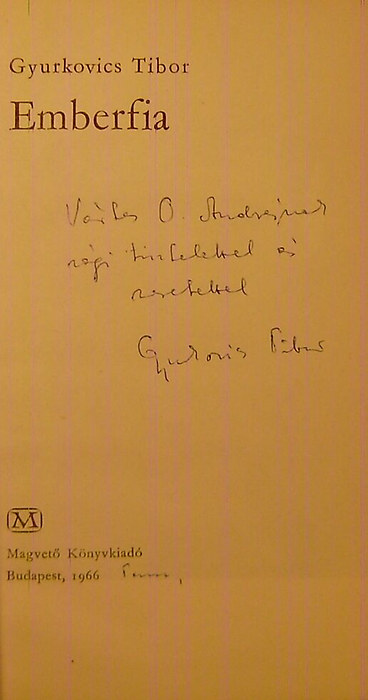 Gyurkovics Tibor
Emberfia
O. Andrásnak
régi tisztelettel és
szeretettel
Gyurkovics Tibor
M
Magvető Könyvkiadó
Budapest, 1966